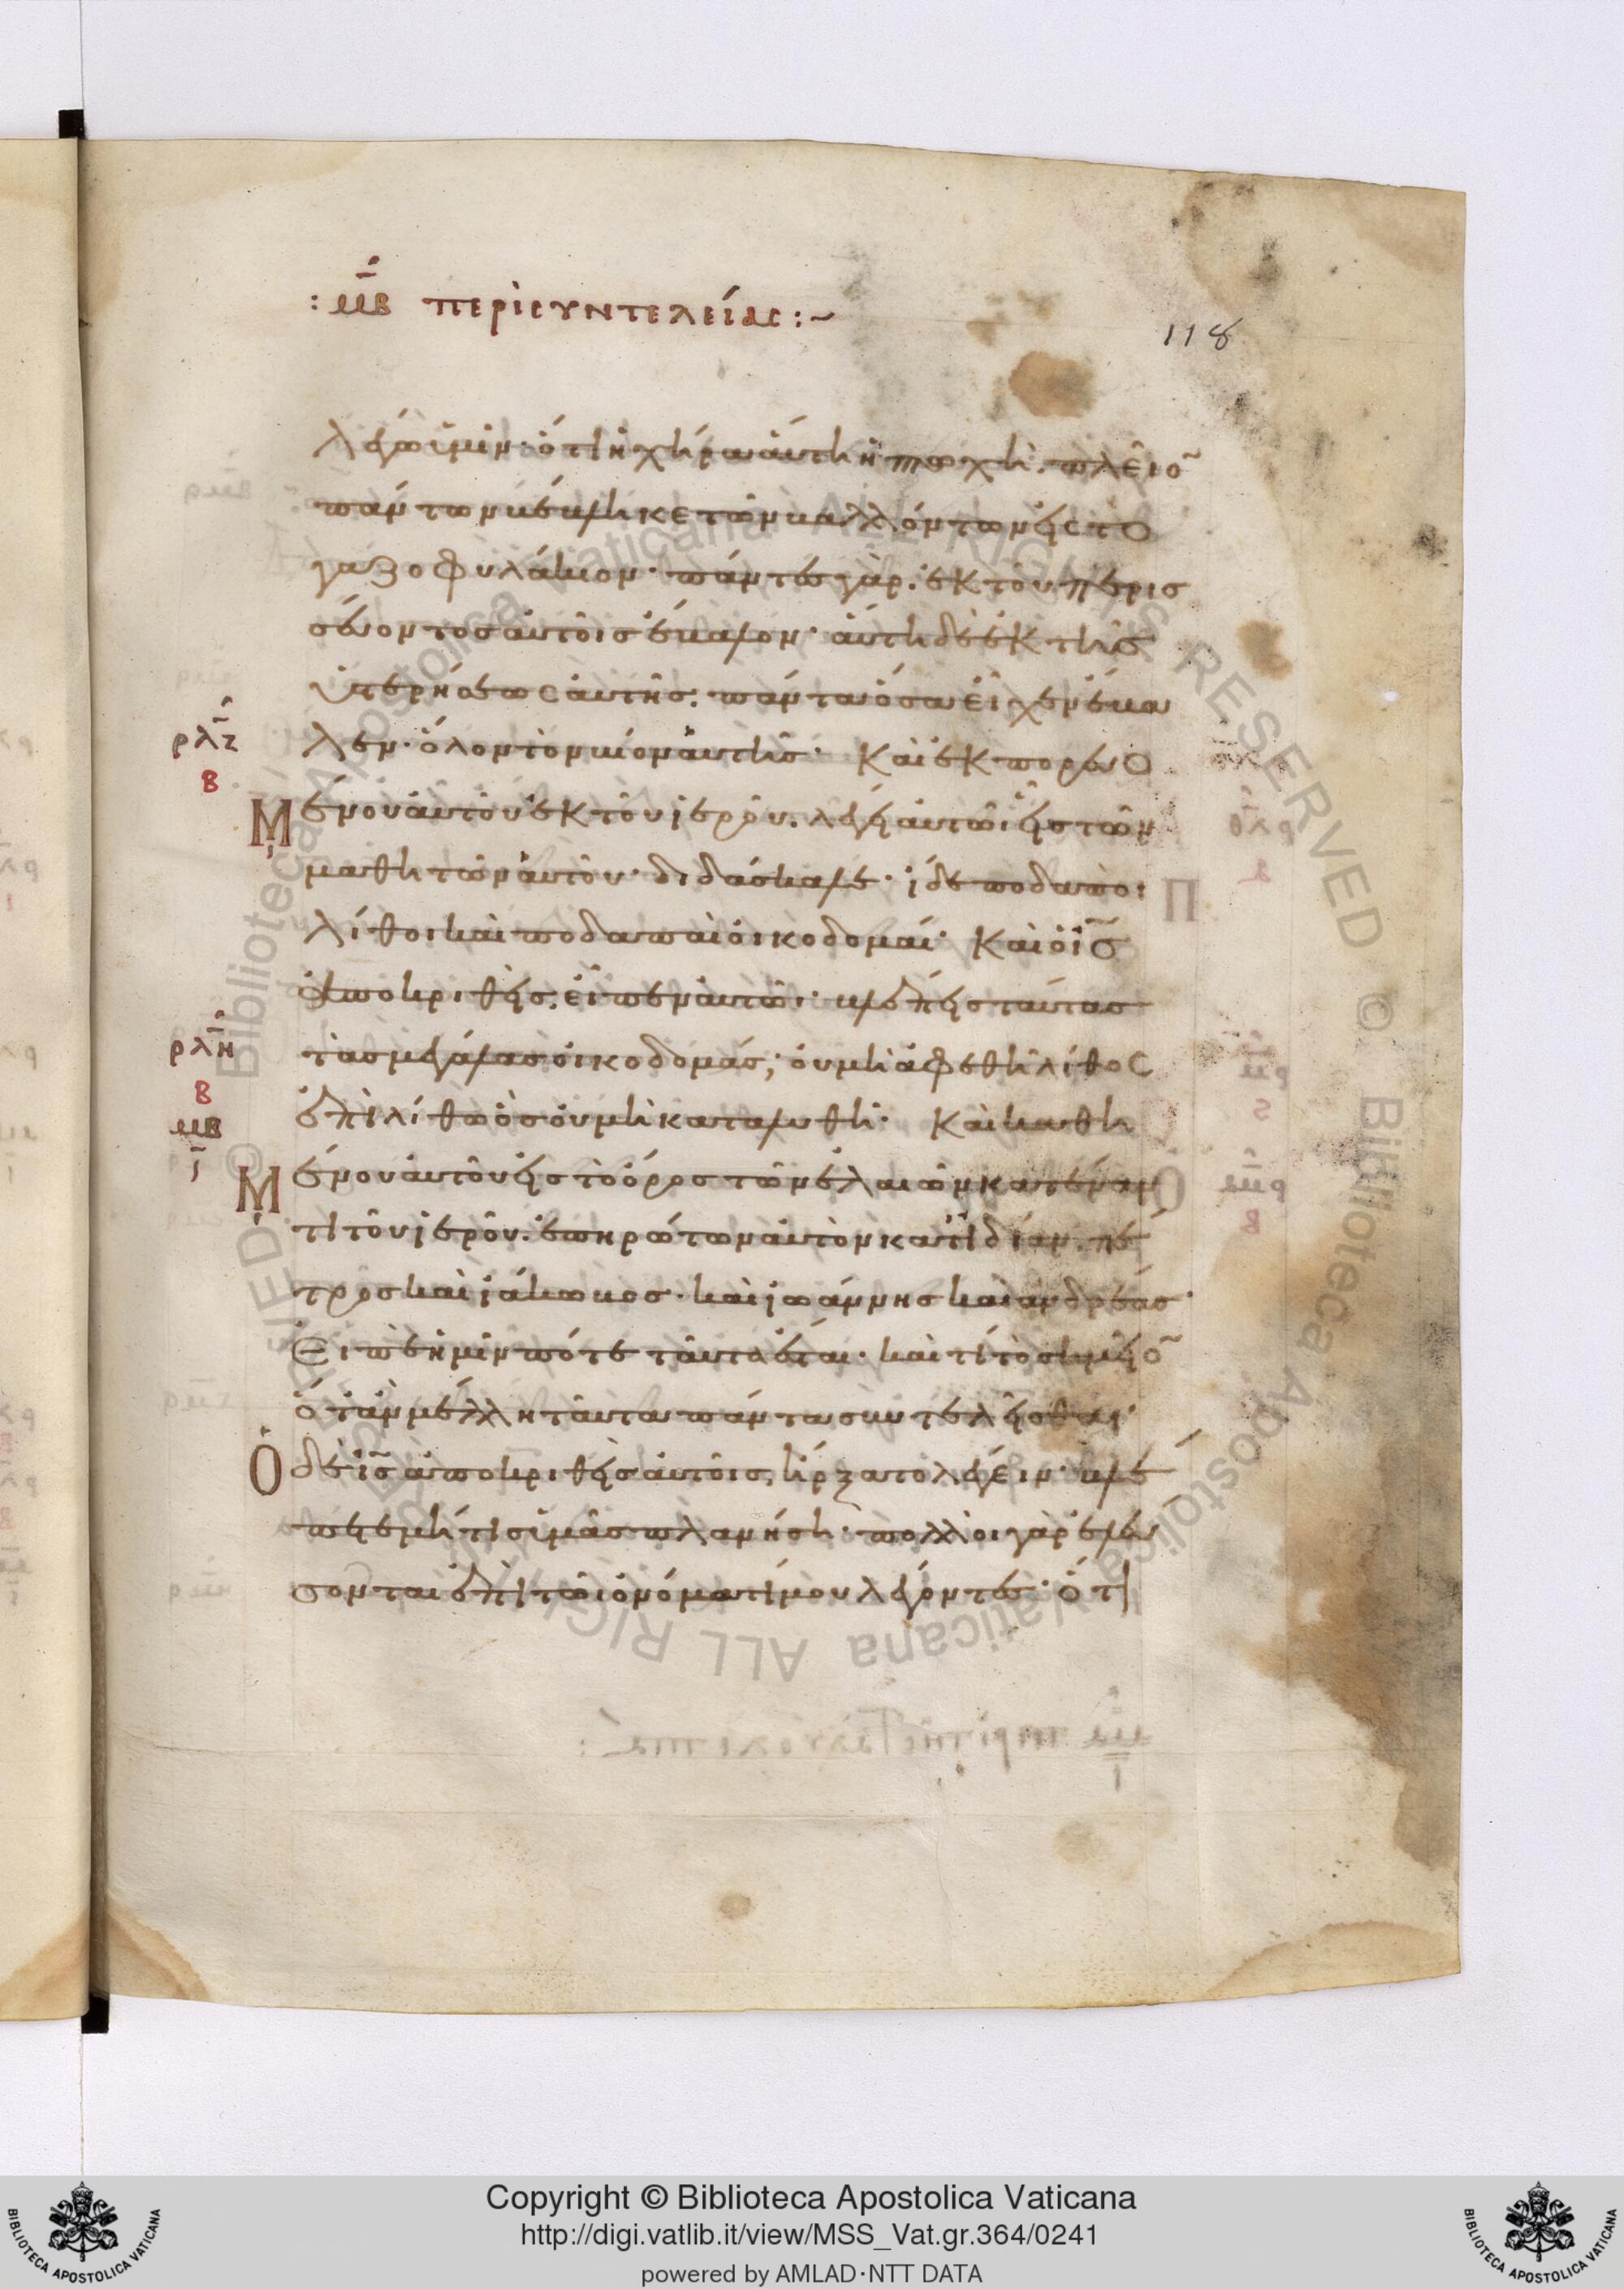 : μβ περὶ συντελείας :~
118
λέγω ὑμῖν· ὅτι ἡ χήρα αὐτη ἡ πτωχὴ. πλεῖο̄
πάντων βέβληκε τῶν βαλλόντων εἰς τὸ
γαζοφυλάκιον· πάντες γὰρ. ἐκ τοῦ περισ
σεύοντος αὐτοῖς ἔβαλον· αὕτη δὲ ἐκ τῆς
ὑστερήσεως αὐτῆς. πάντα ὅσα εἶχεν ἔβα
ρλζ
β
λεν· ὅλον τὸν βίον αὐτῆς· Καὶ ἐκπορευο
Μένου αὐτοῦ ἐκ τοῦ ἱεροῦ. λέγει αὐτῶι εἷς τῶν
μαθητῶν αὐτοῦ· διδάσκαλε· ἴδε ποδαποὶ
λίθοι καὶ ποδαπαὶ οἰκοδομαί· Καὶ ὁ ις̄
ἀποκριθεὶς. εἶπεν αὐτῶι· βλέπεις ταύτας
ρλη
β
τὰς μεγάλας οἰκοδομάς; οὐ μὴ ἀφεθῆ λίθος
μβ
ἐπὶ λίθω ὃς οὐ μὴ καταλυθῆ· Καὶ καθη
Μένου αὐτοῦ εἰς τὸ ὄρος τῶν ἐλαιῶν κατέναν
τι τοῦ ἱεροῦ. ἐπηρώτων αὐτὸν κατιδίαν. πέ
τρος καὶ ἰάκωβος· καὶ ἰωάννης καὶ ἀνδρέας·
Εἰπὲ ἡμῖν πότε ταῦτα ἔσται· καὶ τί τὸ σημεῖο̄
ὅταν μέλλη ταῦτα πάντα συντελεῖσθαι·
Ὁ δὲ ις̄ ἀποκριθεὶς αὐτοῖς, ἤρξατο λέγειν· βλέ
πετε μή τις ὑμᾶς πλανήση· πολλοὶ γὰρ ἐλεύ
σονται ἐπὶ τῶι ὀνόματί μου λέγοντες· ὅτι
Copyright © Biblioteca Apostolica Vaticana
http://digi.vatlib.it/view/MSS_Vat.gr.364/0241
powered by AMLAD·NTT DATA